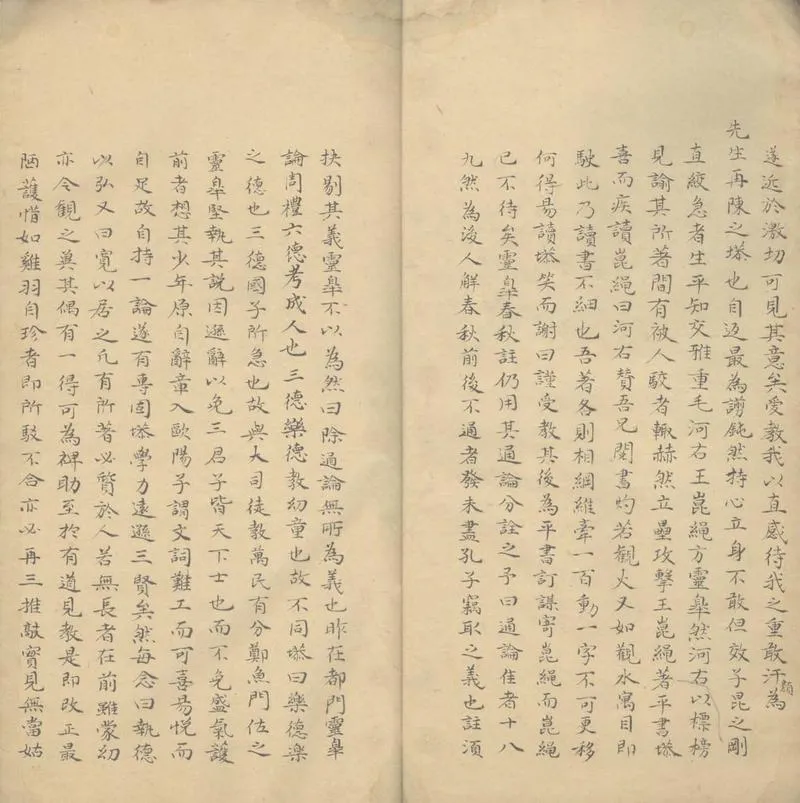 遂近於激切可見其意矣愛教我以直感待我之重敢汗為
顏
先生再陳之塨也自返最為謭鈍然持心立身不敢但效子昆之剛
直絞急者生平知交雅重毛河右王崑繩方靈皋然河右以標榜
見諭其所著間有被人駮者輙赫然立壘攻擊王崑繩著平書塨
喜而疾讀崑繩曰河右贊吾兄閱書灼若觀火又如觀水寓目即
駛此乃讀書不細也吾著各則相綱維牽一百動一字不可更移
何得易讀塨笑而謝曰謹受教其後為平書訂謀寄崑繩而崑繩
已不待矣靈皋春秋註仍用其通論分詮之予曰通論佳者十八
九然為後人解春秋前後不通者發未盡孔子竊取之義也註須
抉剔其義靈皋不以為然曰除通論無所為義也昨在都門靈皋
論周禮六德考成人也三德樂德教幼童也故不同塨曰樂德樂
之德也三德國子所急也故與大司徒教萬民有分鄭魚門佐之
靈皋堅執其說因遜辭以免三君子皆天下士也而不免盛氣護
前者想其少年原自辭章入歐陽子謂文詞難工而可喜易悅而
自足故自持一論遂有專固塨學力遠遜三賢矣然每念曰執德
以弘又曰寬以居之凡有所著必質於人若無長者在前雖蒙幼
亦令觀之冀其偶有一得可為裨助至於有道見教是即改正最
陋護惜如雞羽自珍者即所駁不合亦必再三推敲實見無當姑